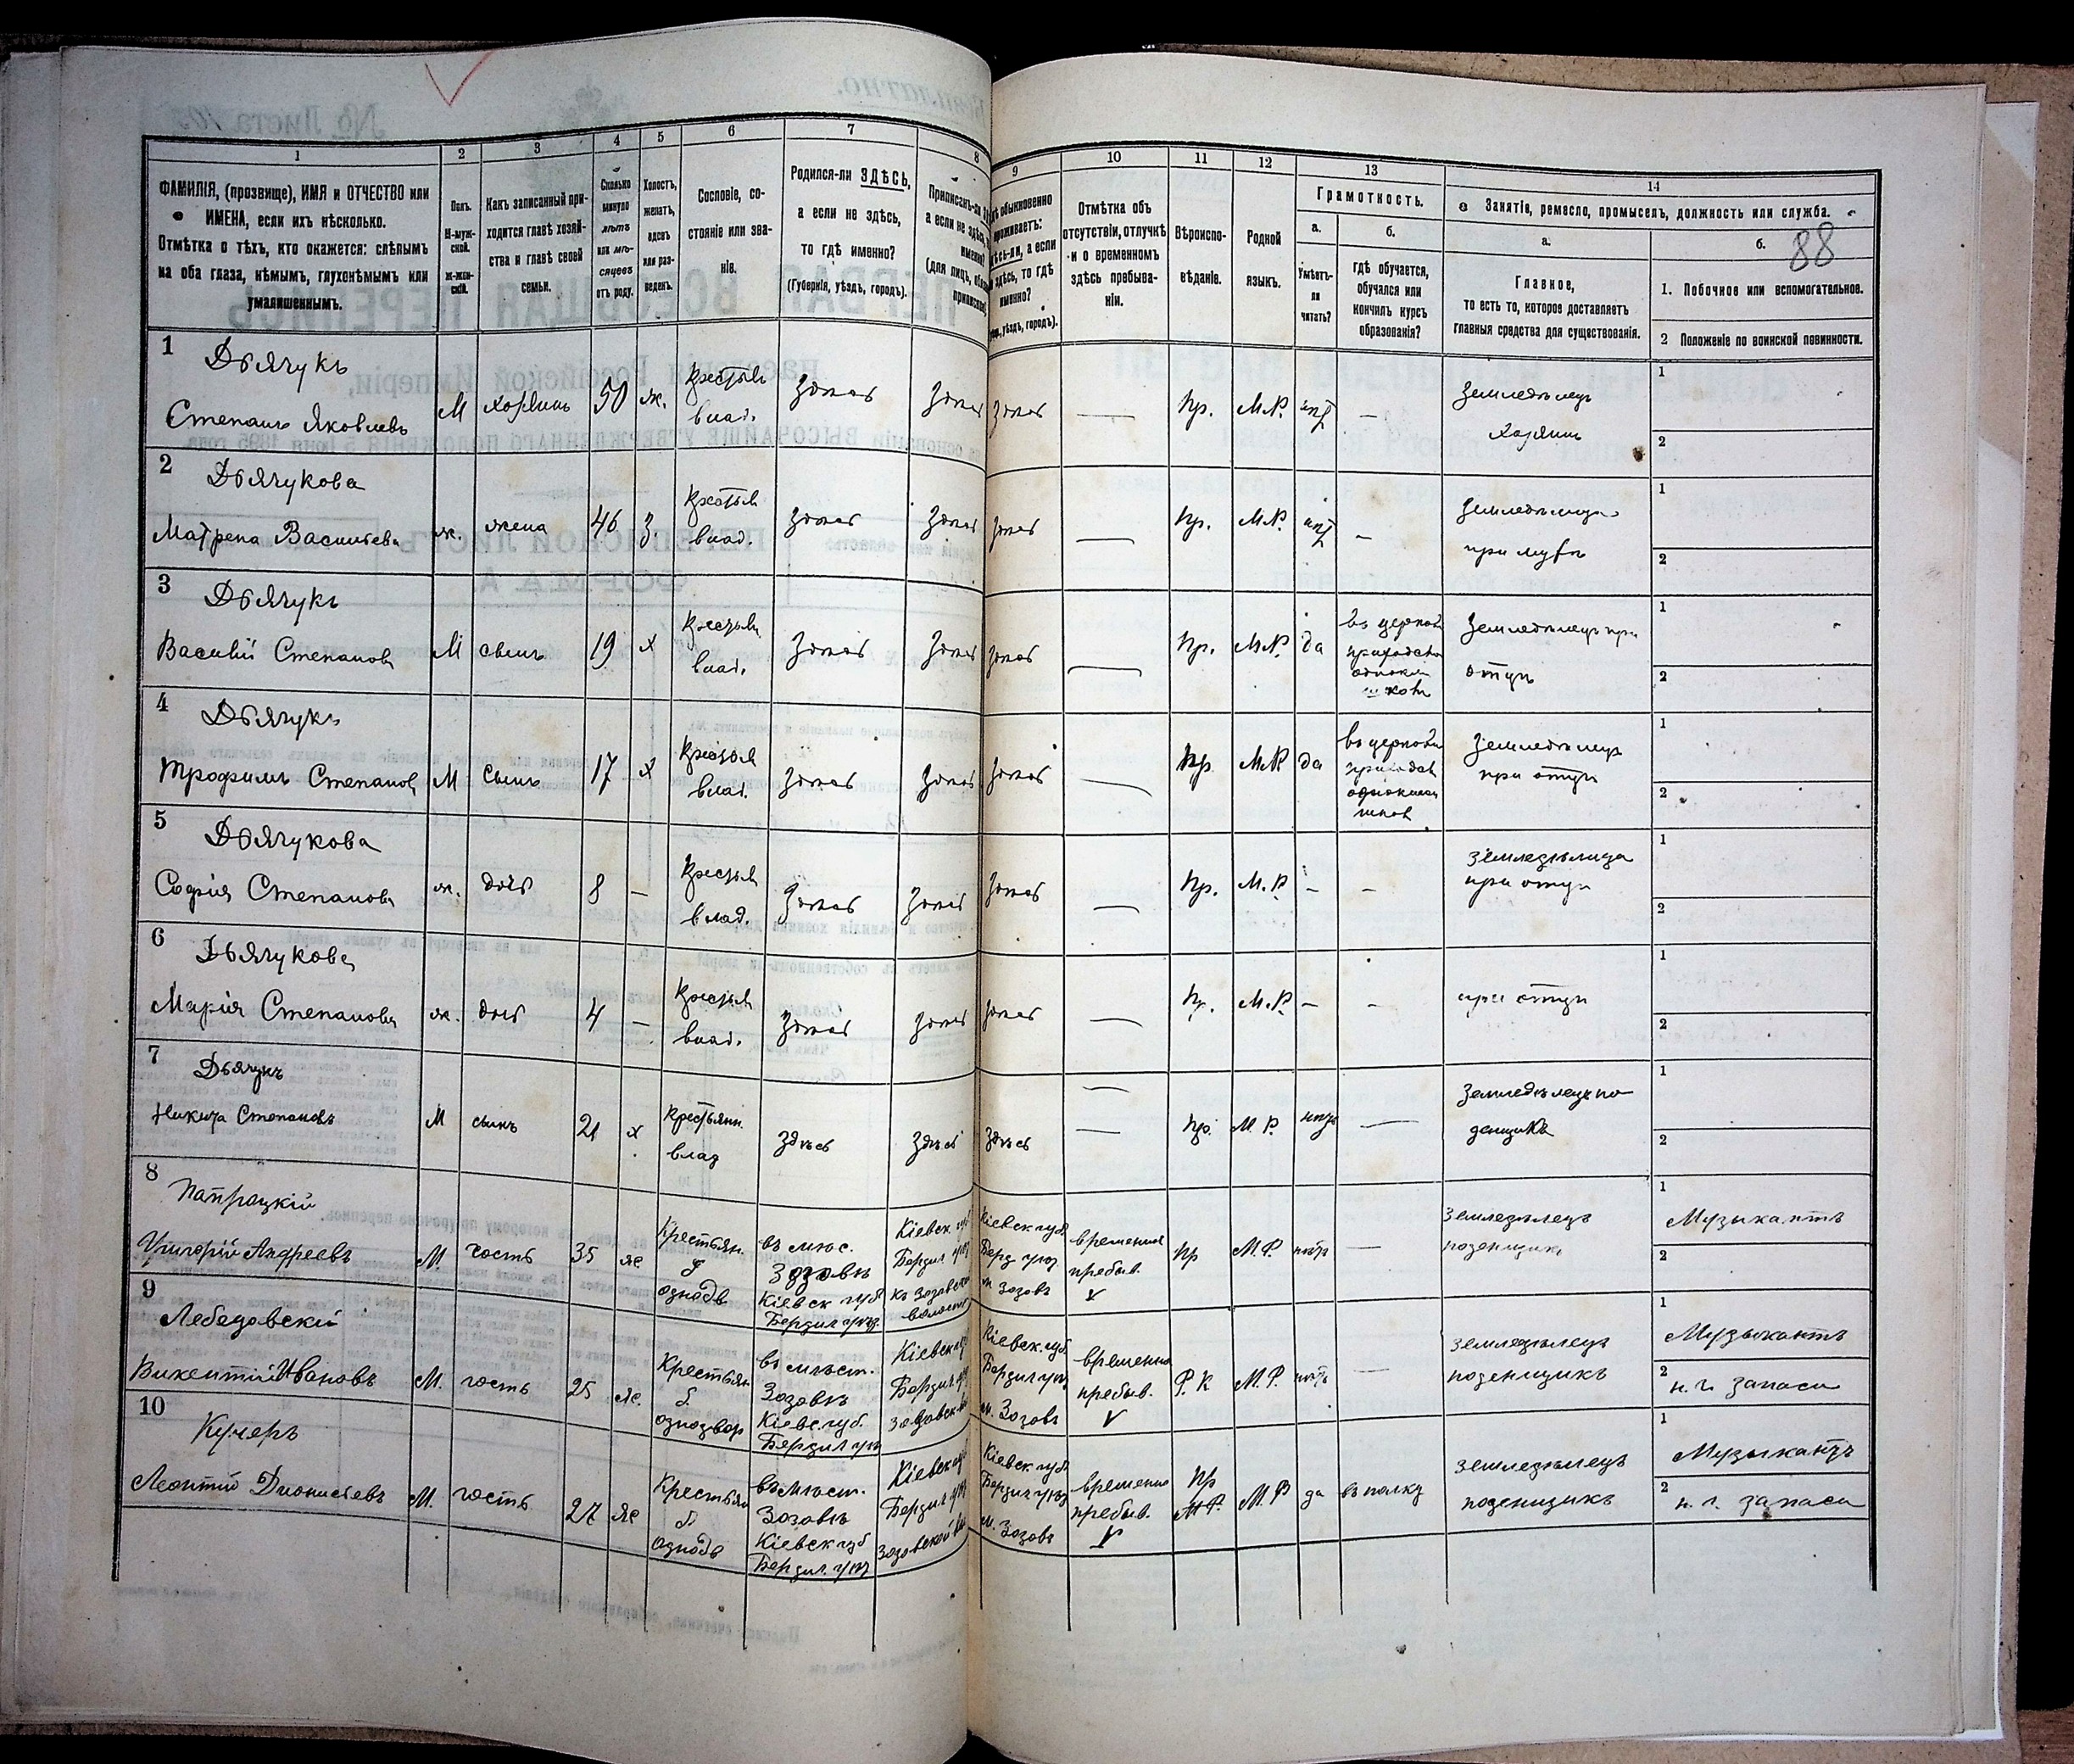 88
1 2 3 4 5 6 7 8 9 10 11 12 13 14
ФАМИЛІЯ, (прозвище), ИМЯ и ОТЧЕСТВО или
ИМЕНА, если ихъ нѣсколько.
Отмѣтка о тѣхъ, кто окажется: слѣпымъ
на оба глаза, нѣмымъ, глухонѣмымъ или
умалишеннымъ.
Полъ.
М-муж-
ской.
Ж-жен-
скій.
Какъ записанный при-
ходится главѣ хозяй-
ства и главѣ своей
семьи.
Сколько
минуло
лѣтъ
или мѣ-
сяцевъ
отъ роду.
Холостъ,
женатъ,
вдовъ
или раз-
веденъ.
Сословіе, со-
стояніе или зва-
ніе.
Родился-ли ЗДѢСЬ,
а если не здѣсь,
то гдѣ именно?
(Губернія, уѣздъ, городъ).
Приписанъ-ли
а если не здѣсь,
(для лицъ,
обыкновенно
а если
здѣсь, то гдѣ
именно?
уѣздъ, городъ).
Отмѣтка объ
отсутствіи, отлучкѣ
и о временномъ
здѣсь пребыва-
ніи.
Вѣроиспо-
вѣданіе.
Родной
языкъ.
Грамотность.
а.
Умѣетъ-
ли
читать?
б.
гдѣ обучается,
обучался или
кончилъ курсъ
образованія?
Занятіе, ремесло, промыселъ, должность или служба.
а.
Главное,
то есть то, которое доставляетъ
главныя средства для существованія.
б.
1. Побочное или вспомогательное.
2 Положеніе по воинской повинности.
1
Дьячукъ
Степанъ Яковлевъ
М хозяинъ 50 ж.
влад.
Здѣсь Здѣсь Здѣсь — Пр. М.Р. нѣт —
Земледѣлецъ
хозяинъ
1
2
2
Дьячукова
Матрена Васильева
ж. жена 46 З.
влад.
Здѣсь Здѣсь Здѣсь — Пр. М.Р. нѣт —
при мужѣ
1
2
3
Дьячукъ
Василій Степановъ
М сынъ 19 х
влад.
Здѣсь Здѣсь Здѣсь — Пр. М.Р. да
Земледѣлецъ при
отцѣ
1
2
4
Дьячукъ
Трофимъ Степанов
М сынъ 17 х
влад.
Здѣсь Здѣсь Здѣсь — Пр М.Р да
Земледѣлецъ
при отцѣ
1
2
5
Дьячукова
Софія Степанова
ж. дочь 8 —
влад.
Здѣсь Здѣсь Здѣсь — Пр. М.Р. — —
земледѣлица
при отцѣ
1
2
6
Дьячукова
Марія Степанова
ж. дочь 4 —
влад.
Здѣсь Здѣсь Здѣсь — Пр. М.Р. — —
при отцѣ
1
2
7
Дьячукъ
Никита Степановъ
М сынъ 21 х
Крестьянин.
влад
Здѣсь Здѣсь Здѣсь — Пр. М.Р. нѣтъ —
Земледѣлецъ по
денщикъ
1
2
8
Патрацкій
Григорій Андреевъ
М. гость 35 же
Крестьян.
б
однодв
въ мѣс.
Зозовѣ
Кіевск губ
Бердич уѣзд.
Кіевск губ
Бердич уѣз
къ Зозовской
волости
Кіевск губ.
Берд уѣзд
м. Зозовъ
временно
пребыв.
V
Пр М.Р. нѣтъ —
земледѣлецъ
поденщикъ
1 Музыкантъ
2
9
Лебедовскій
Викентій Ивановъ
М. гость 25 же.
Крестьян
б.
однодвор
въ мѣст.
Зозовѣ
Кіевс. губ.
Бердич уѣз
Кіевск губ
Бердич уѣз
Зозовской
Кіевск. губ.
Бердич уѣзд
м. Зозовъ
временно
пребыв.
V
Р. К М.Р. нѣтъ —
земледѣлецъ
поденщикъ
1 Музыкантъ
2 н. ч. запаса
10
Кучеръ
Леонтій Діонисіевъ
М. гость 27 же
Крестьян
б.
однодв
въ мѣст.
Зозовѣ
Кіевск губ
Бердич. уѣз
Кіевск губ
Бердич уѣз
Зозовской
Кіевск губ.
Бердич уѣзд
м. Зозовъ
временно
пребыв.
V
Пр
М.Р.
М.Р да въ полку
земледѣлецъ
поденщикъ
1 Музыкантъ
2 н. ч. запаса